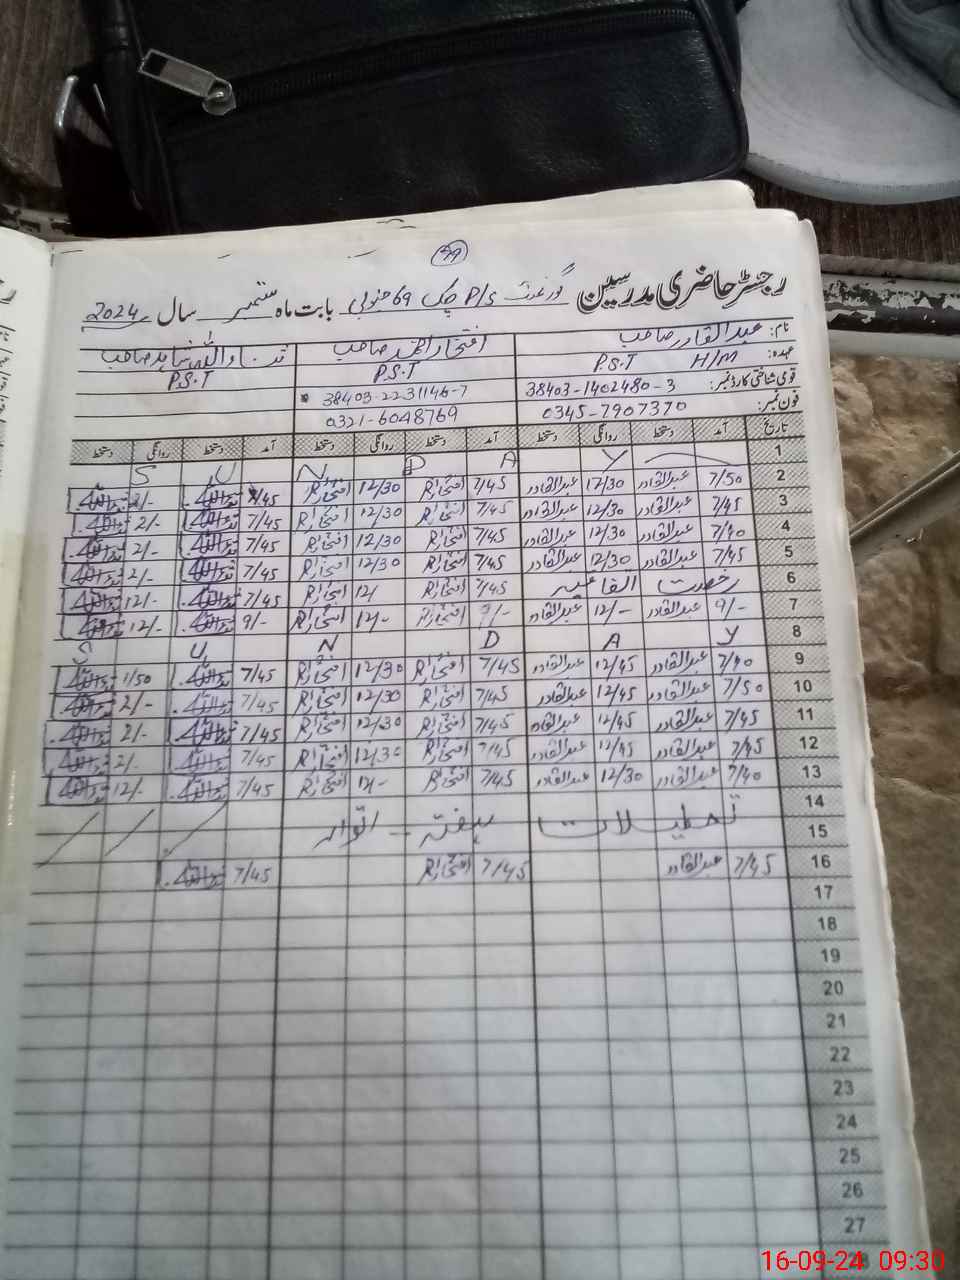 49
رجسٹر حاضری مدرسین گورنمنٹ P/S چک 69 جنوبی بابت ماہ ستمبر سال 2024
نام: عبدالقادر صاحب افتخار احمد صاحب
عہدہ: H/M P.S.T P.S.T P.S.T
قومی شناختی کارڈ نمبر: 38403-1402480-3 38403-2231146-7
فون نمبر: 0345-7907370 0321-6048769
تاریخ آمد دستخط روانگی دستخط آمد دستخط روانگی دستخط آمد دستخط روانگی دستخط
1 S U N D A Y
2 7/50 عبدالقادر 12/30 عبدالقادر 7/45 افتخار 12/30 افتخار 7/45 2/-
3 7/45 عبدالقادر 12/30 عبدالقادر 7/45 افتخار 12/30 افتخار 7/45 2/-
4 7/40 عبدالقادر 12/30 عبدالقادر 7/45 افتخار 12/30 افتخار 7/45 2/-
5 7/45 عبدالقادر 12/30 عبدالقادر 7/45 افتخار 12/30 افتخار 7/45 2/-
6 رخصت اتفاقیہ 7/45 افتخار 12/ افتخار 7/45 12/-
7 9/- عبدالقادر 12/- عبدالقادر 9/- افتخار 12/- افتخار 9/- 12/-
8 S U N D A Y
9 7/40 عبدالقادر 12/45 عبدالقادر 7/45 افتخار 12/30 افتخار 7/45 1/50
10 7/50 عبدالقادر 12/45 عبدالقادر 7/45 افتخار 12/30 افتخار 7/45 2/-
11 7/45 عبدالقادر 12/45 عبدالقادر 7/45 افتخار 12/30 افتخار 7/45 2/-
12 7/45 عبدالقادر 12/45 عبدالقادر 7/45 افتخار 12/30 افتخار 7/45 2/-
13 7/40 عبدالقادر 12/30 عبدالقادر 7/45 افتخار 12/- افتخار 7/45 12/-
14
تعطیلات ہفتہ - اتوار
15
16 7/45 عبدالقادر 7/45 افتخار 7/45
17
18
19
20
21
22
23
24
25
26
27
28
16-09-24 09:30